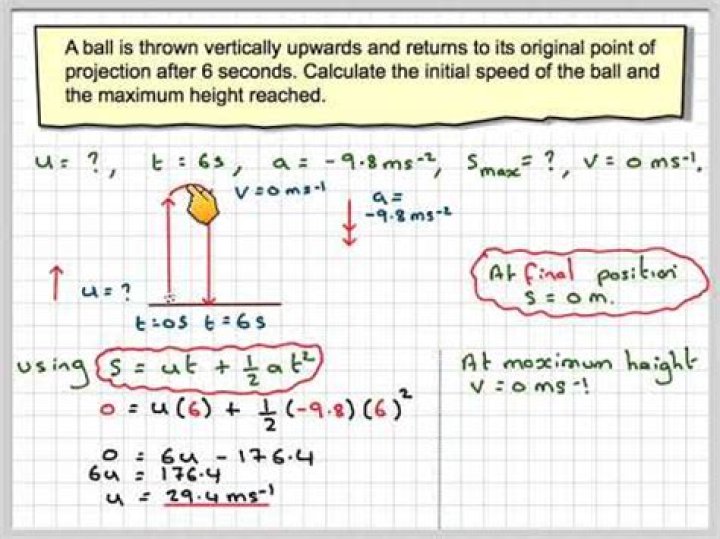 A ball is thrown vertically upwards and returns to its original point of
projection after 6 seconds. Calculate the initial speed of the ball and
the maximum height reached.
u = ?, t = 6s, a = -9.8ms⁻², Smax = ?, v = 0 ms⁻¹.
v = 0 ms⁻¹
a =
-9.8ms⁻²
u = ?
t = 0s t = 6s
At final position
s = 0 m.
using s = ut + ½at²
0 = u(6) + ½(-9.8)(6)²
0 = 6u - 176.4
6u = 176.4
u = 29.4ms⁻¹
At maximum height
v = 0 ms⁻¹